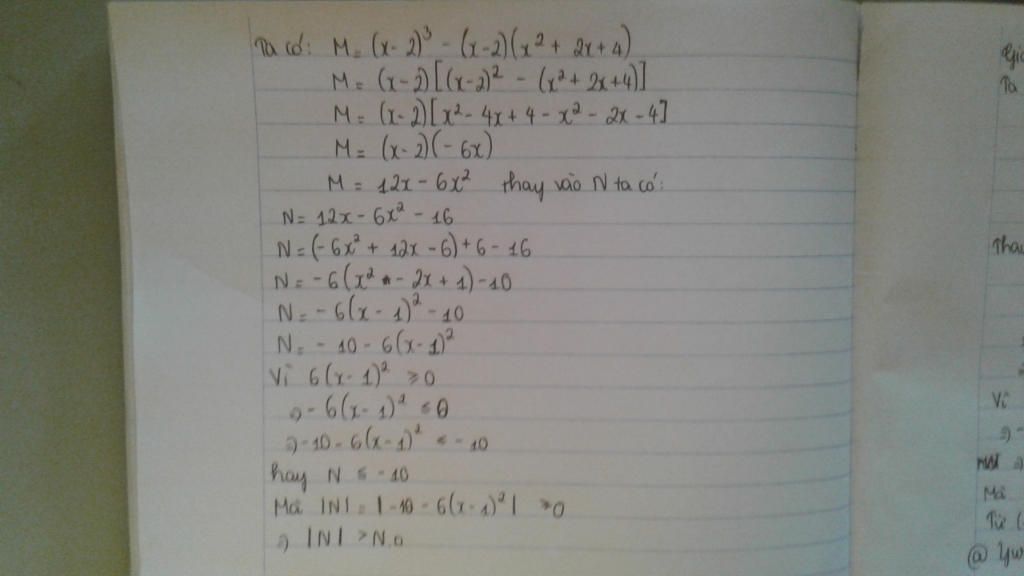 Ta có: M = (x-2)³ - (x-2)(x² + 2x+4)
M = (x-2)[(x-2)² - (x²+2x+4)]
M = (x-2)[x²- 4x+4 - x² - 2x - 4]
M = (x-2)(-6x)
M = 12x - 6x² thay vào N ta có:
N = 12x - 6x² - 16
N = (-6x² + 12x - 6) + 6 - 16
N = -6(x² - 2x + 1) - 10
N = -6(x - 1)² - 10
N = - 10 - 6(x-1)²
Vì 6(x-1)² ⩾ 0
⇒ - 6(x-1)² ⩽ 0
⇒ -10 - 6(x-1)² ⩽ - 10
hay N ⩽ -10
Mà |N| = |-10 - 6(x-1)²| ⩾ 0
⇒ |N| > N
Ta
Vì
Mà
Từ (